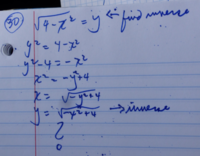 30) √4-x² = y ← find inverse
y² = 4-x²
y²-4 = -x²
x² = -y²+4
x = √-y²+4
y = √-x²+4 → inverse